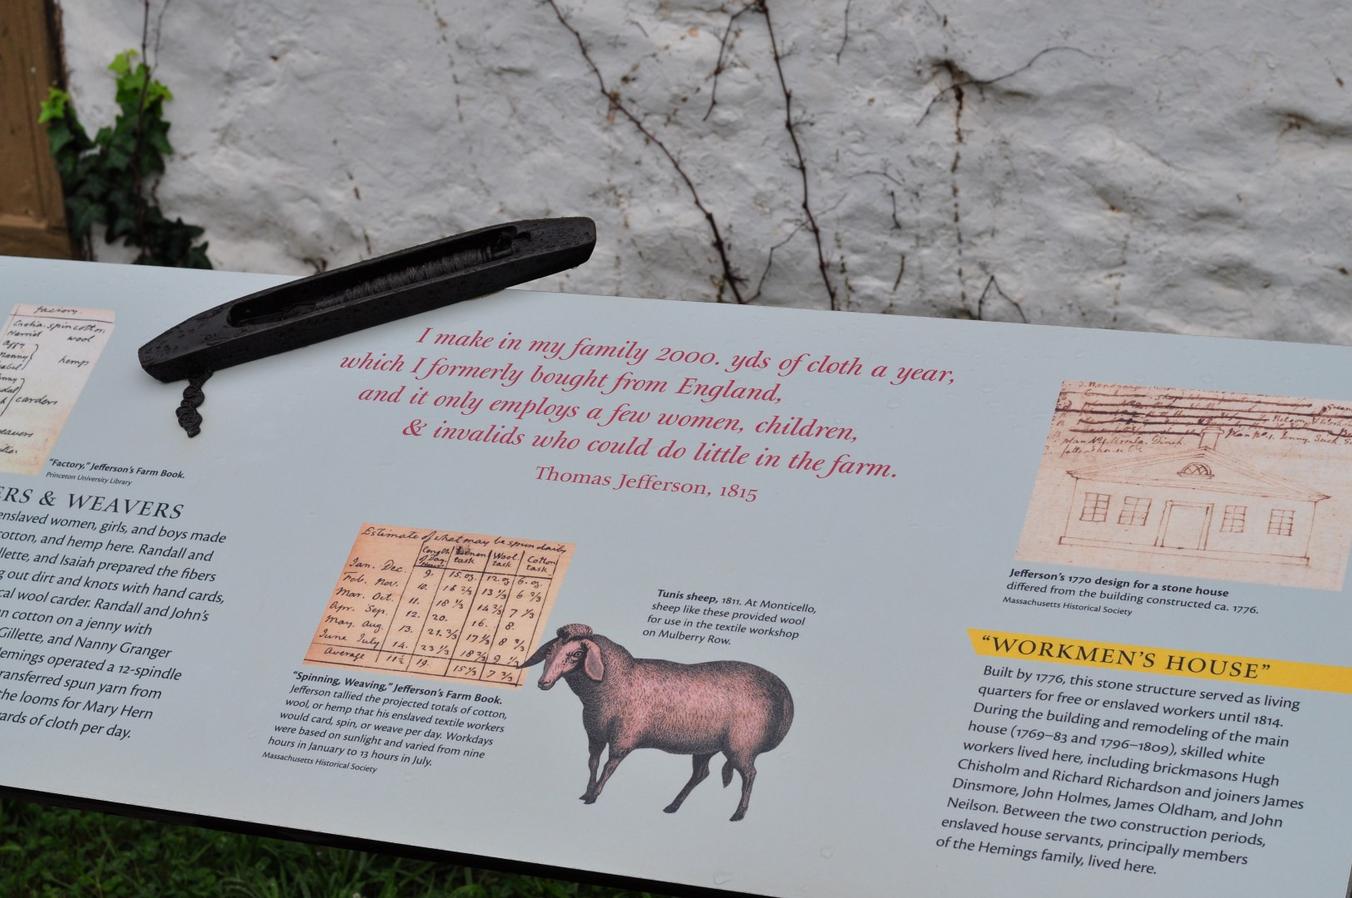 factory.
spin cotton.
wool
hemp
carders
"Factory," Jefferson's Farm Book.
Princeton University Library
ERS & WEAVERS
enslaved women, girls, and boys made
cotton, and hemp here. Randall and
llette, and Isaiah prepared the fibers
g out dirt and knots with hand cards,
cal wool carder. Randall and John's
n cotton on a jenny with
Gillette, and Nanny Granger
emings operated a 12-spindle
ransferred spun yarn from
the looms for Mary Hern
ards of cloth per day.
I make in my family 2000. yds of cloth a year,
which I formerly bought from England,
and it only employs a few women, children,
& invalids who could do little in the farm.
Thomas Jefferson, 1815
Estimate of what may be spun daily
Wool task Cotton task
Jan. Dec. 9. 15.oz. 12.oz. 6.oz.
Feb. Nov. 10. 16 2/3 13 1/3 6 2/3
Mar. Oct. 11. 18 1/3 14 2/3 7 1/3
Apr. Sep. 12. 20. 16. 8.
May. Aug. 13. 21. 2/3 17 1/3 8 2/3
June July 14. 23 1/3 18 2/3 9 1/3
Average 11 1/2 19. 15 1/3 7 2/3
"Spinning, Weaving," Jefferson's Farm Book.
Jefferson tallied the projected totals of cotton,
wool, or hemp that his enslaved textile workers
would card, spin, or weave per day. Workdays
were based on sunlight and varied from nine
hours in January to 13 hours in July.
Massachusetts Historical Society
Tunis sheep, 1811. At Monticello,
sheep like these provided wool
for use in the textile workshop
on Mulberry Row.
Jefferson's 1770 design for a stone house
differed from the building constructed ca. 1776.
Massachusetts Historical Society
"WORKMEN'S HOUSE"
Built by 1776, this stone structure served as living
quarters for free or enslaved workers until 1814.
During the building and remodeling of the main
house (1769–83 and 1796–1809), skilled white
workers lived here, including brickmasons Hugh
Chisholm and Richard Richardson and joiners James
Dinsmore, John Holmes, James Oldham, and John
Neilson. Between the two construction periods,
enslaved house servants, principally members
of the Hemings family, lived here.